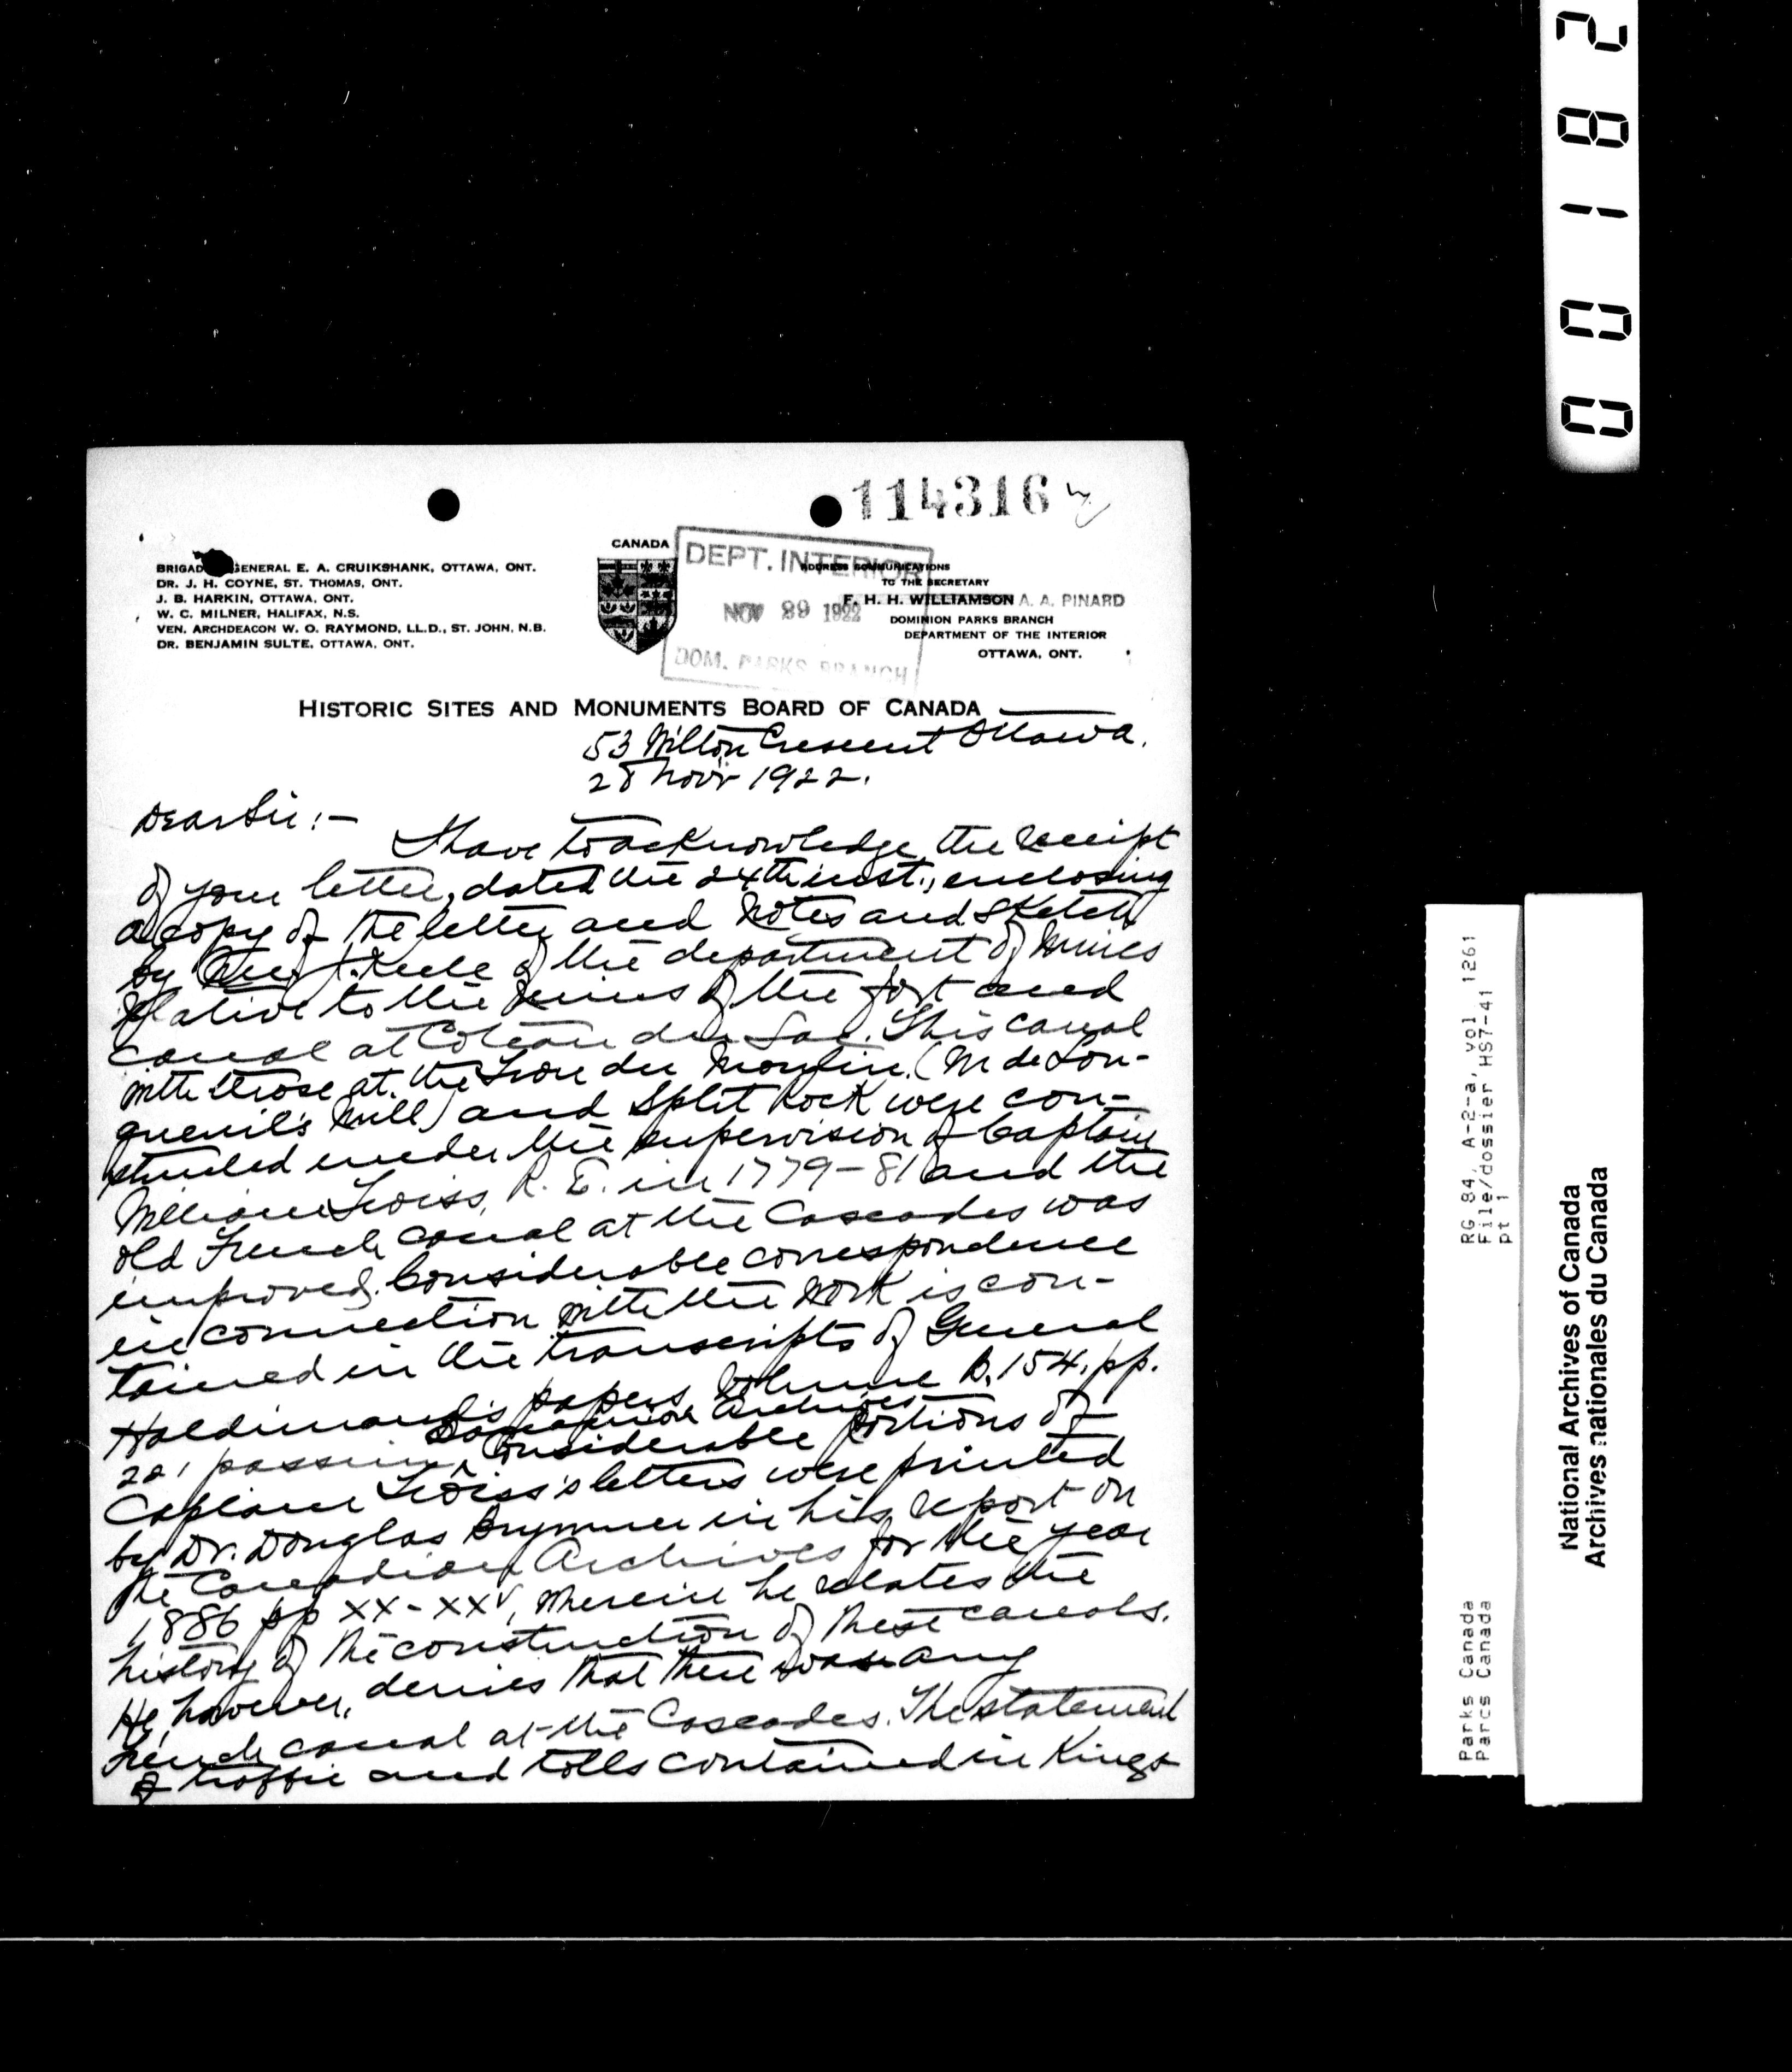 00182
114316
CANADA
BRIGAD GENERAL E. A. CRUIKSHANK, OTTAWA, ONT.
DR. J. H. COYNE, ST. THOMAS, ONT.
J. B. HARKIN, OTTAWA, ONT.
W. C. MILNER, HALIFAX, N.S.
VEN. ARCHDEACON W. O. RAYMOND, LL.D., ST. JOHN, N.B.
DR. BENJAMIN SULTE, OTTAWA, ONT.
DEPT. INTERIOR
NOV 29 1922
DOM. PARKS BRANCH
ADDRESS COMMUNICATIONS
TO THE SECRETARY
F. H. H. WILLIAMSON A. A. PINARD
DOMINION PARKS BRANCH
DEPARTMENT OF THE INTERIOR
OTTAWA, ONT.
HISTORIC SITES AND MONUMENTS BOARD OF CANADA
53 Wilton Crescent Ottawa.
28 Novr 1922.
Dear Sir:-
I have to acknowledge the receipt
of your letter, dated the 24th inst., enclosing
a copy of the letter and notes and sketch
by J. Keele of the department of Mines
relative to the ruins of the fort and
canal at Coteau du Lac. This canal
with those at the Trou du Moulin (M de Lon-
gueuil's Mill) and Split Rock were con-
structed under the supervision of Captain
William Twiss, R. E. in 1779-81 and the
old French canal at the Cascades was
improved. Considerable correspondence
in connection with the work is con-
tained in the transcripts of General
Haldimand's papers, Volume B. 154, pp.
Dominion Archives
passim, Considerable portions of
Captain Twiss's letters were printed
by Dr. Douglas Brymner in his report on
the Canadian Archives for the year
1886 pp XX-XXV, wherein he relates the
history of the construction of these canals.
He, however, denies that there was any
French canal at the Cascades. The statement
of traffic and tolls contained in Kings
RG 84, A-2-a, vol. 1261
File/dossier HS7-41
pt 1
Parks Canada
Parcs Canada
National Archives of Canada
Archives nationales du Canada